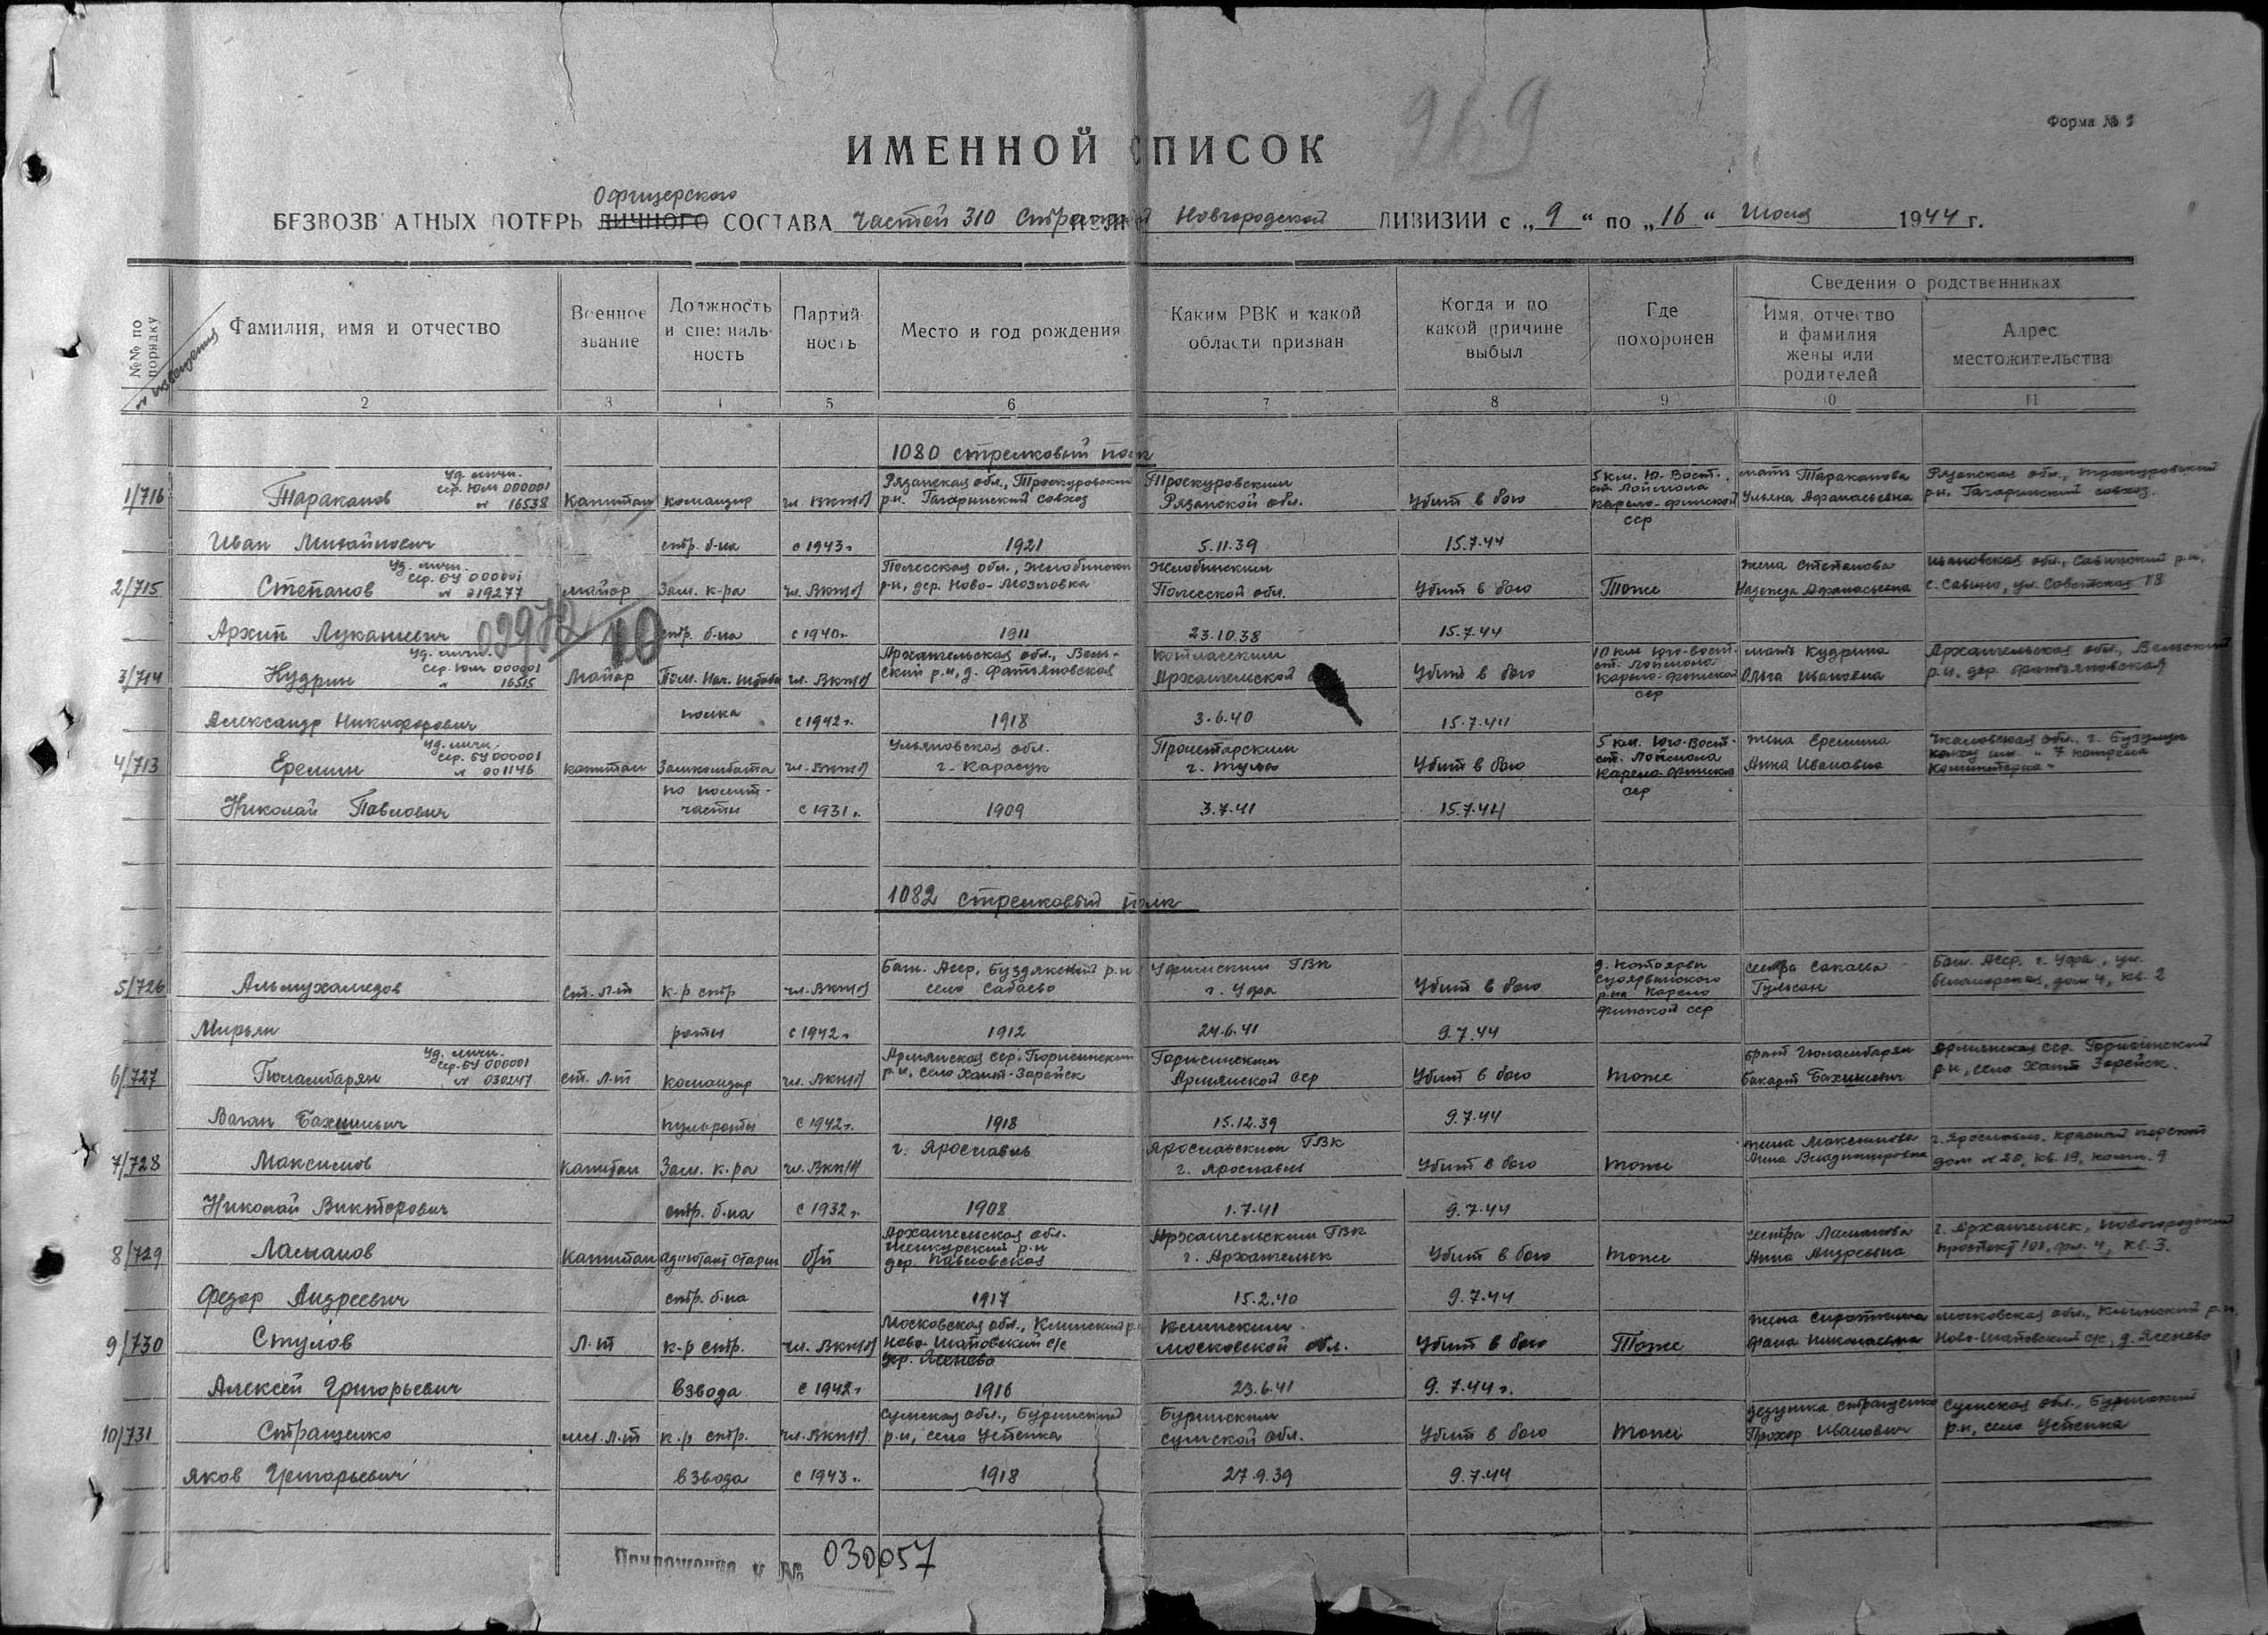 269
Форма № 3
ИМЕННОЙ СПИСОК
Офицерского
БЕЗВОЗВРАТНЫХ ПОТЕРЬ ЛИЧНОГО СОСТАВА частей 310 Стрелковой Новгородской ДИВИЗИИ с „9“ по „16“ Июля 1944 г.
№№ по порядку
№ извещения
Фамилия, имя и отчество
Военное звание
Должность и специальность
Партийность
Место и год рождения
Каким РВК и какой области призван
Когда и по какой причине выбыл
Где похоронен
Сведения о родственниках
Имя, отчество и фамилия жены или родителей
Адрес местожительства
2 3 4 5 6 7 8 9 10 11
1080 стрелковый полк
1/716
Тараканов
уд. личн.
сер. ЮМ 000001
№ 16538
Капитан
командир
чл. ВКП(б)
Рязанская обл., Троекуровский
р-н. Гагаринский совхоз
Троекуровским
Рязанской обл.
Убит в бою
5 км. Ю-Вост.
ст. Лоймола
Карело-финской
сср
мать Тараканова
Ульяна Афанасьевна
Рязанская обл., Троекуровский
р-н. Гагаринский совхоз.
Иван Михайлович
стр. б-на
с 1943г.
1921
5.11.39
15.7.44
2/715
Степанов
уд. личн.
сер. БУ 000001
№ 019277
майор
Зам. к-ра
чл. ВКП(б)
Полесская обл., Жлобинский
р-н, дер. Ново-Мозловка
Жлобинским
Полесской обл.
Убит в бою
Тоже
жена Степанова
Надежда Афанасьевна
Ивановская обл., Савинский р-н,
с. Савино, ул. Советская 18
Архип Лукашевич
02972/10
стр. б-на
с 1940г.
1911
23.10.38
15.7.44
3/714
Кудрин
уд. личн.
сер. ЮМ 000001
№ 16515
Майор
Пом. Нач. штаба
чл. ВКП(б)
Архангельская обл., Вель-
ский р-н, д. Фатьяновская
Котласским
Архангельской
Убит в бою
10 км Юго-вост.
ст. Лоймола
Карело-финской
сср
мать Кудрина
Ольга Ивановна
Архангельская обл., Вельский
р-н, дер. Фатьяновская
Александр Никифорович
полка
с 1942г.
1918
3.6.40
15.7.44
4/713
Еремин
уд. личн.
сер. БУ 000001
№ 001146
капитан
Замкомбата
чл. ВКП(б)
Ульяновская обл.
г. Карасун
Пролетарским
г. Тулы
Убит в бою
5 км. Юго-Вост.
ст. Лоймола
Карело-финской
сср
жена Еремина
Анна Ивановна
Чкаловская обл., г. Бузулук
колхоз им. "7 конгресса
Коминтерна"
Николай Павлович
по полит-
части
с 1931г.
1909
3.7.41
15.7.44
1082 стрелковый полк
5/726
Альмухамедов
ст. л-т
к-р стр
чл. ВКП(б)
Баш. Асср, Буздякский р-н
село Сабаево
Уфимским ГВК
г. Уфа
Убит в бою
Суоярвинского
р-на Карело
финской сср
сестра Сапаева
Гульсан
Баш. Асср, г. Уфа, ул.
Беломорская, дом 4, кв. 2
Мирьян
роты
с 1942г.
1912
24.6.41
9.7.44
6/727
Гюламбарян
уд. личн.
сер. БУ 000001
№ 030247
ст. л-т
командир
чл. ВКП(б)
Армянская сср. Горисинский
р-н, село Хант-Зарейск
Горисинским
Армянской сср
Убит в бою
тоже
брат Гюламбарян
Бакарт Бахшиевич
Армянская сср. Горисинский
р-н, село Хант Зарейск.
Ваган Бахшиевич
пульроты
с 1942г.
1918
15.12.39
9.7.44
7/728
Максимов
Капитан
Зам. к-ра
чл. ВКП(б)
г. Ярославль
Ярославским ГВК
г. Ярославль
Убит в бою
тоже
жена Максимова
Анна Владимировна
г. Ярославль, Красный перекоп
дом № 20, кв. 19, комн. 9
Николай Викторович
стр. б-на
с 1932г.
1908
1.7.41
9.7.44
8/729
Ласманов
Капитан
адъютант старш
б/п
Архангельская обл.
Шенкурский р-н
дер. Павловская
Архангельским ГВК
г. Архангельск
Убит в бою
тоже
сестра Ласманова
Анна Андреевна
г. Архангельск, Новогородский
проспект 101, фл. 4, кв. 3.
Федор Андреевич
стр. б-на
1917
15.2.40
9.7.44
9/730
Стулов
Л-т
к-р стр.
чл. ВКП(б)
Московская обл., Клинский р-н
Ново-Щаповский с/с
дер. Ясенево
Клинским
Московской обл.
Убит в бою
Тоже
жена Сироткина
Николаевна
Московская обл., Клинский р-н.
Ново-Щаповский с/с, д. Ясенево
Алексей Григорьевич
взвода
с 1942г
1916
23.6.41
9.7.44г.
10/731
Стращенко
мл. л-т
к-р стр.
чл. ВКП(б)
Сумская обл., Буринский
р-н, село Успенка
Буринским
Сумской обл.
Убит в бою
тоже
дедушка Стращенко
Прохор Иванович
Сумская обл., Буринский
р-н, село Успенка
Яков Григорьевич
взвода
с 1943г.
1918
27.9.39
9.7.44
Приложение к вх 030057